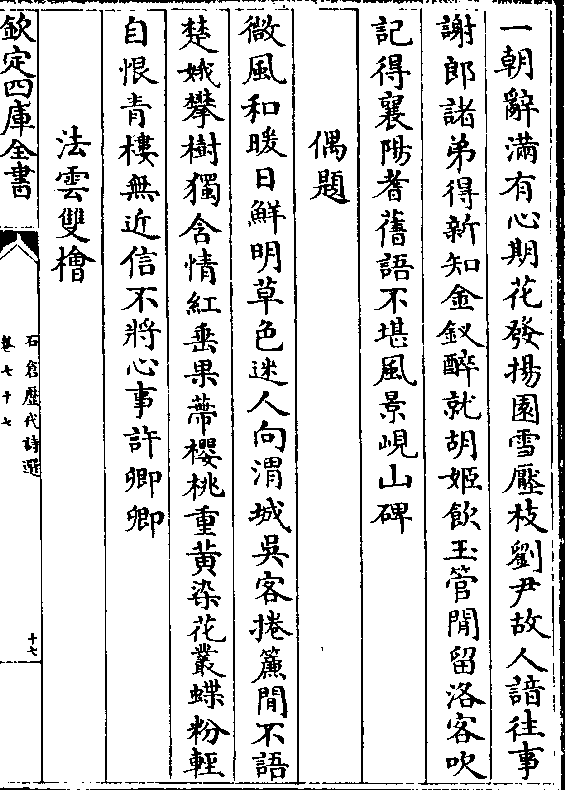 一朝辭滿有心期花發揚園雪壓枝劉尹故人諳往事
謝郎諸弟得新知金釵醉就胡姬飲玉管閒留洛客吹
記得襄陽耆舊語不堪風景峴山碑
偶題
微風和暖日鮮明草色迷人向渭城吳客捲簾閒不語
楚娥攀樹獨含情紅垂果蔕櫻桃重黃染花叢蝶粉輕
自恨青樓無近信不將心事許卿卿
法雲雙檜
欽定四庫全書
石倉歷代詩選
卷七十七
十七